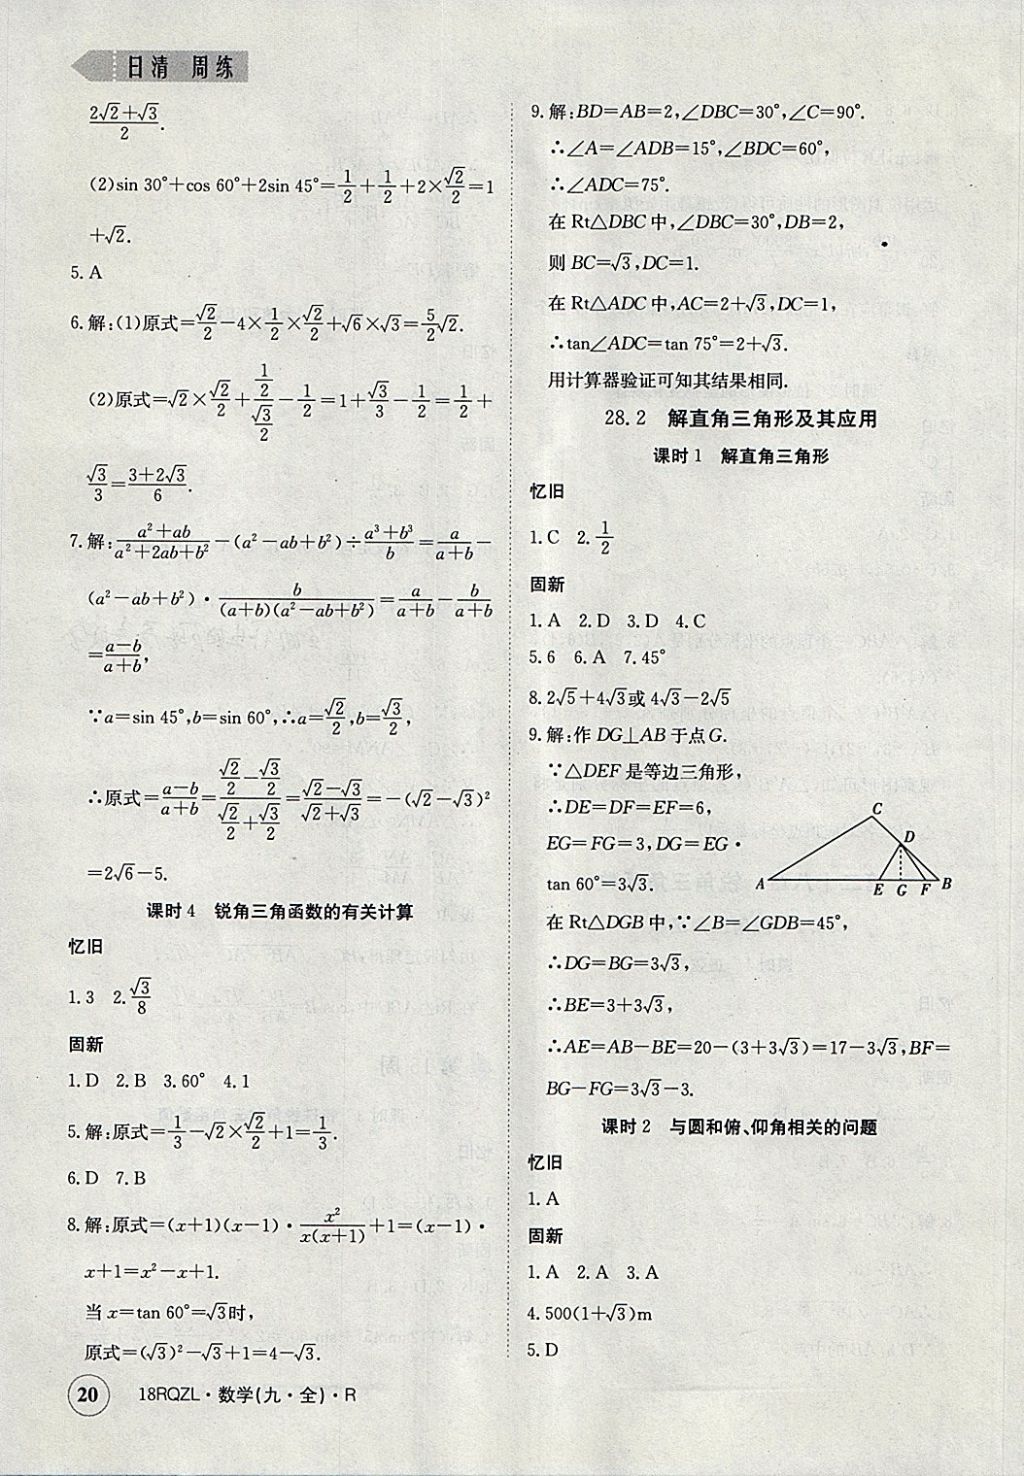 日清 周练
(2√2+√3)/2.
(2)sin 30°+cos 60°+2sin 45°=1/2+1/2+2×√2/2=1
+√2.
5. A
6. 解:(1)原式=√2/2-4×1/2×√2/2+√6×√3=5/2√2.
(2)原式=√2×√2/2+(1/2)/(√3/2)-1/2=1+√3/3-1/2=1/2+
√3/3=(3+2√3)/6.
7. 解:(a²+ab)/(a²+2ab+b²)-(a²-ab+b²)÷(a³+b³)/b=a/(a+b)-
(a²-ab+b²)·b/((a+b)(a²-ab+b²))=a/(a+b)-b/(a+b)
=(a-b)/(a+b),
∵a=sin 45°,b=sin 60°,∴a=√2/2,b=√3/2,
∴原式=(a-b)/(a+b)=(√2/2-√3/2)/(√2/2+√3/2)=(√2-√3)/(√2+√3)=-(√2-√3)²
=2√6-5.
课时4 锐角三角函数的有关计算
忆旧
1. 3 2. √3/8
固新
1. D 2. B 3. 60° 4. 1
5. 解:原式=1/3-√2×√2/2+1=1/3.
6. D 7. B
8. 解:原式=(x+1)(x-1)·x²/(x(x+1))+1=(x-1)·
x+1=x²-x+1.
当x=tan 60°=√3时,
原式=(√3)²-√3+1=4-√3.
20 18RQZL·数学(九·全)·R
9. 解:BD=AB=2,∠DBC=30°,∠C=90°.
∴∠A=∠ADB=15°,∠BDC=60°,
∴∠ADC=75°.
在Rt△DBC中,∠DBC=30°,DB=2,
则BC=√3,DC=1.
在Rt△ADC中,AC=2+√3,DC=1,
∴tan∠ADC=tan 75°=2+√3.
用计算器验证可知其结果相同.
28.2 解直角三角形及其应用
课时1 解直角三角形
忆旧
1. C 2. 1/2
固新
1. A 2. D 3. D 4. C
5. 6 6. A 7. 45°
8. 2√5+4√3或4√3-2√5
9. 解:作DG⊥AB于点G.
∵△DEF是等边三角形,
∴DE=DF=EF=6,
EG=FG=3,DG=EG·
tan 60°=3√3.
C
D
A E G F B
在Rt△DGB中,∵∠B=∠GDB=45°,
∴DG=BG=3√3,
∴BE=3+3√3,
∴AE=AB-BE=20-(3+3√3)=17-3√3,BF=
BG-FG=3√3-3.
课时2 与圆和俯、仰角相关的问题
忆旧
1. A
固新
1. A 2. A 3. A
4. 500(1+√3)m
5. D